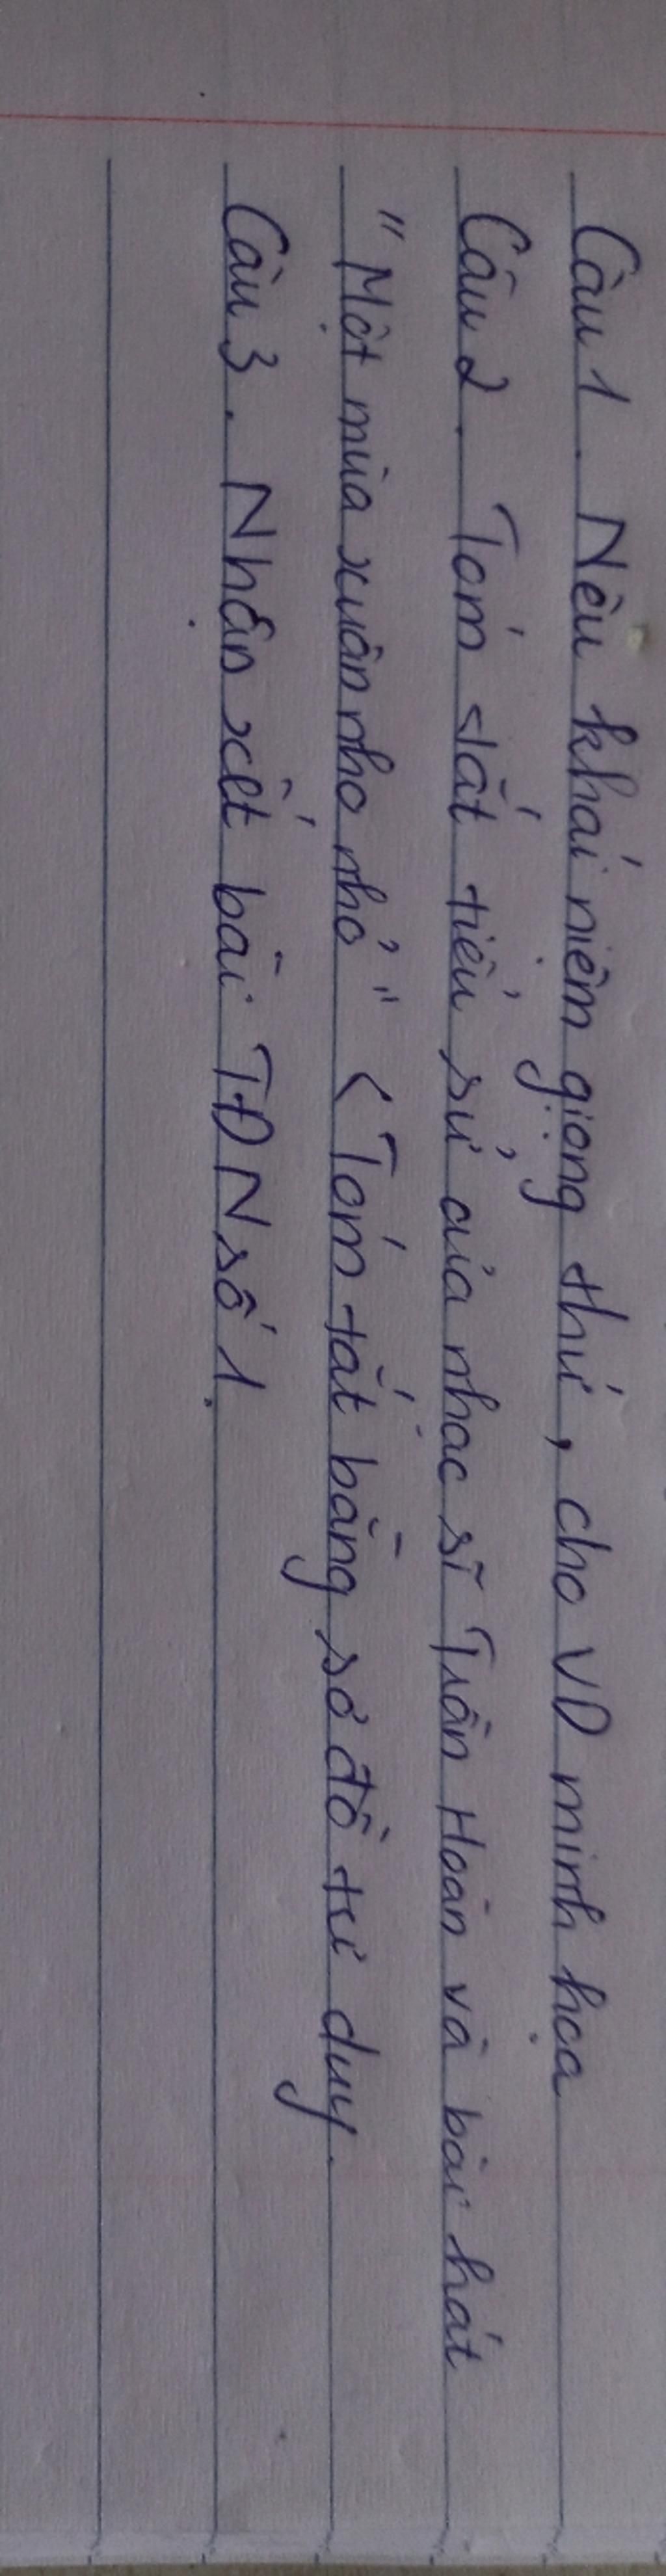 Câu 1. Nêu khái niệm giọng thứ, cho VD minh họa
Câu 2. Tóm tắt tiểu sử của nhạc sĩ Trần Hoàn và bài hát
"Một mùa xuân nho nhỏ" < Tóm tắt bằng sơ đồ tư duy.
Câu 3. Nhận xét bài TĐN số 1.